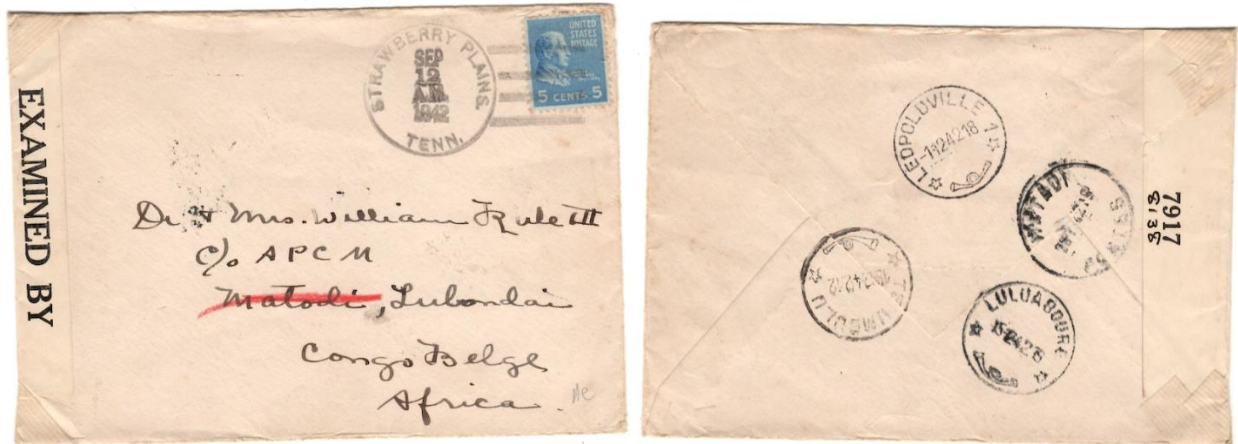 EXAMINED BY
STRAWBERRY PLAINS,
TENN.
SEP
12
A.M.
1942
UNITED
STATES
POSTAGE
5 CENTS 5
Dr & Mrs. William Rule III
c/o A P C M
Matadi, Lubondai
Congo Belge
Africa.
LEOPOLDVILLE 1
MATADI
TSHUMBULU
LULUABOURG
7917
8138